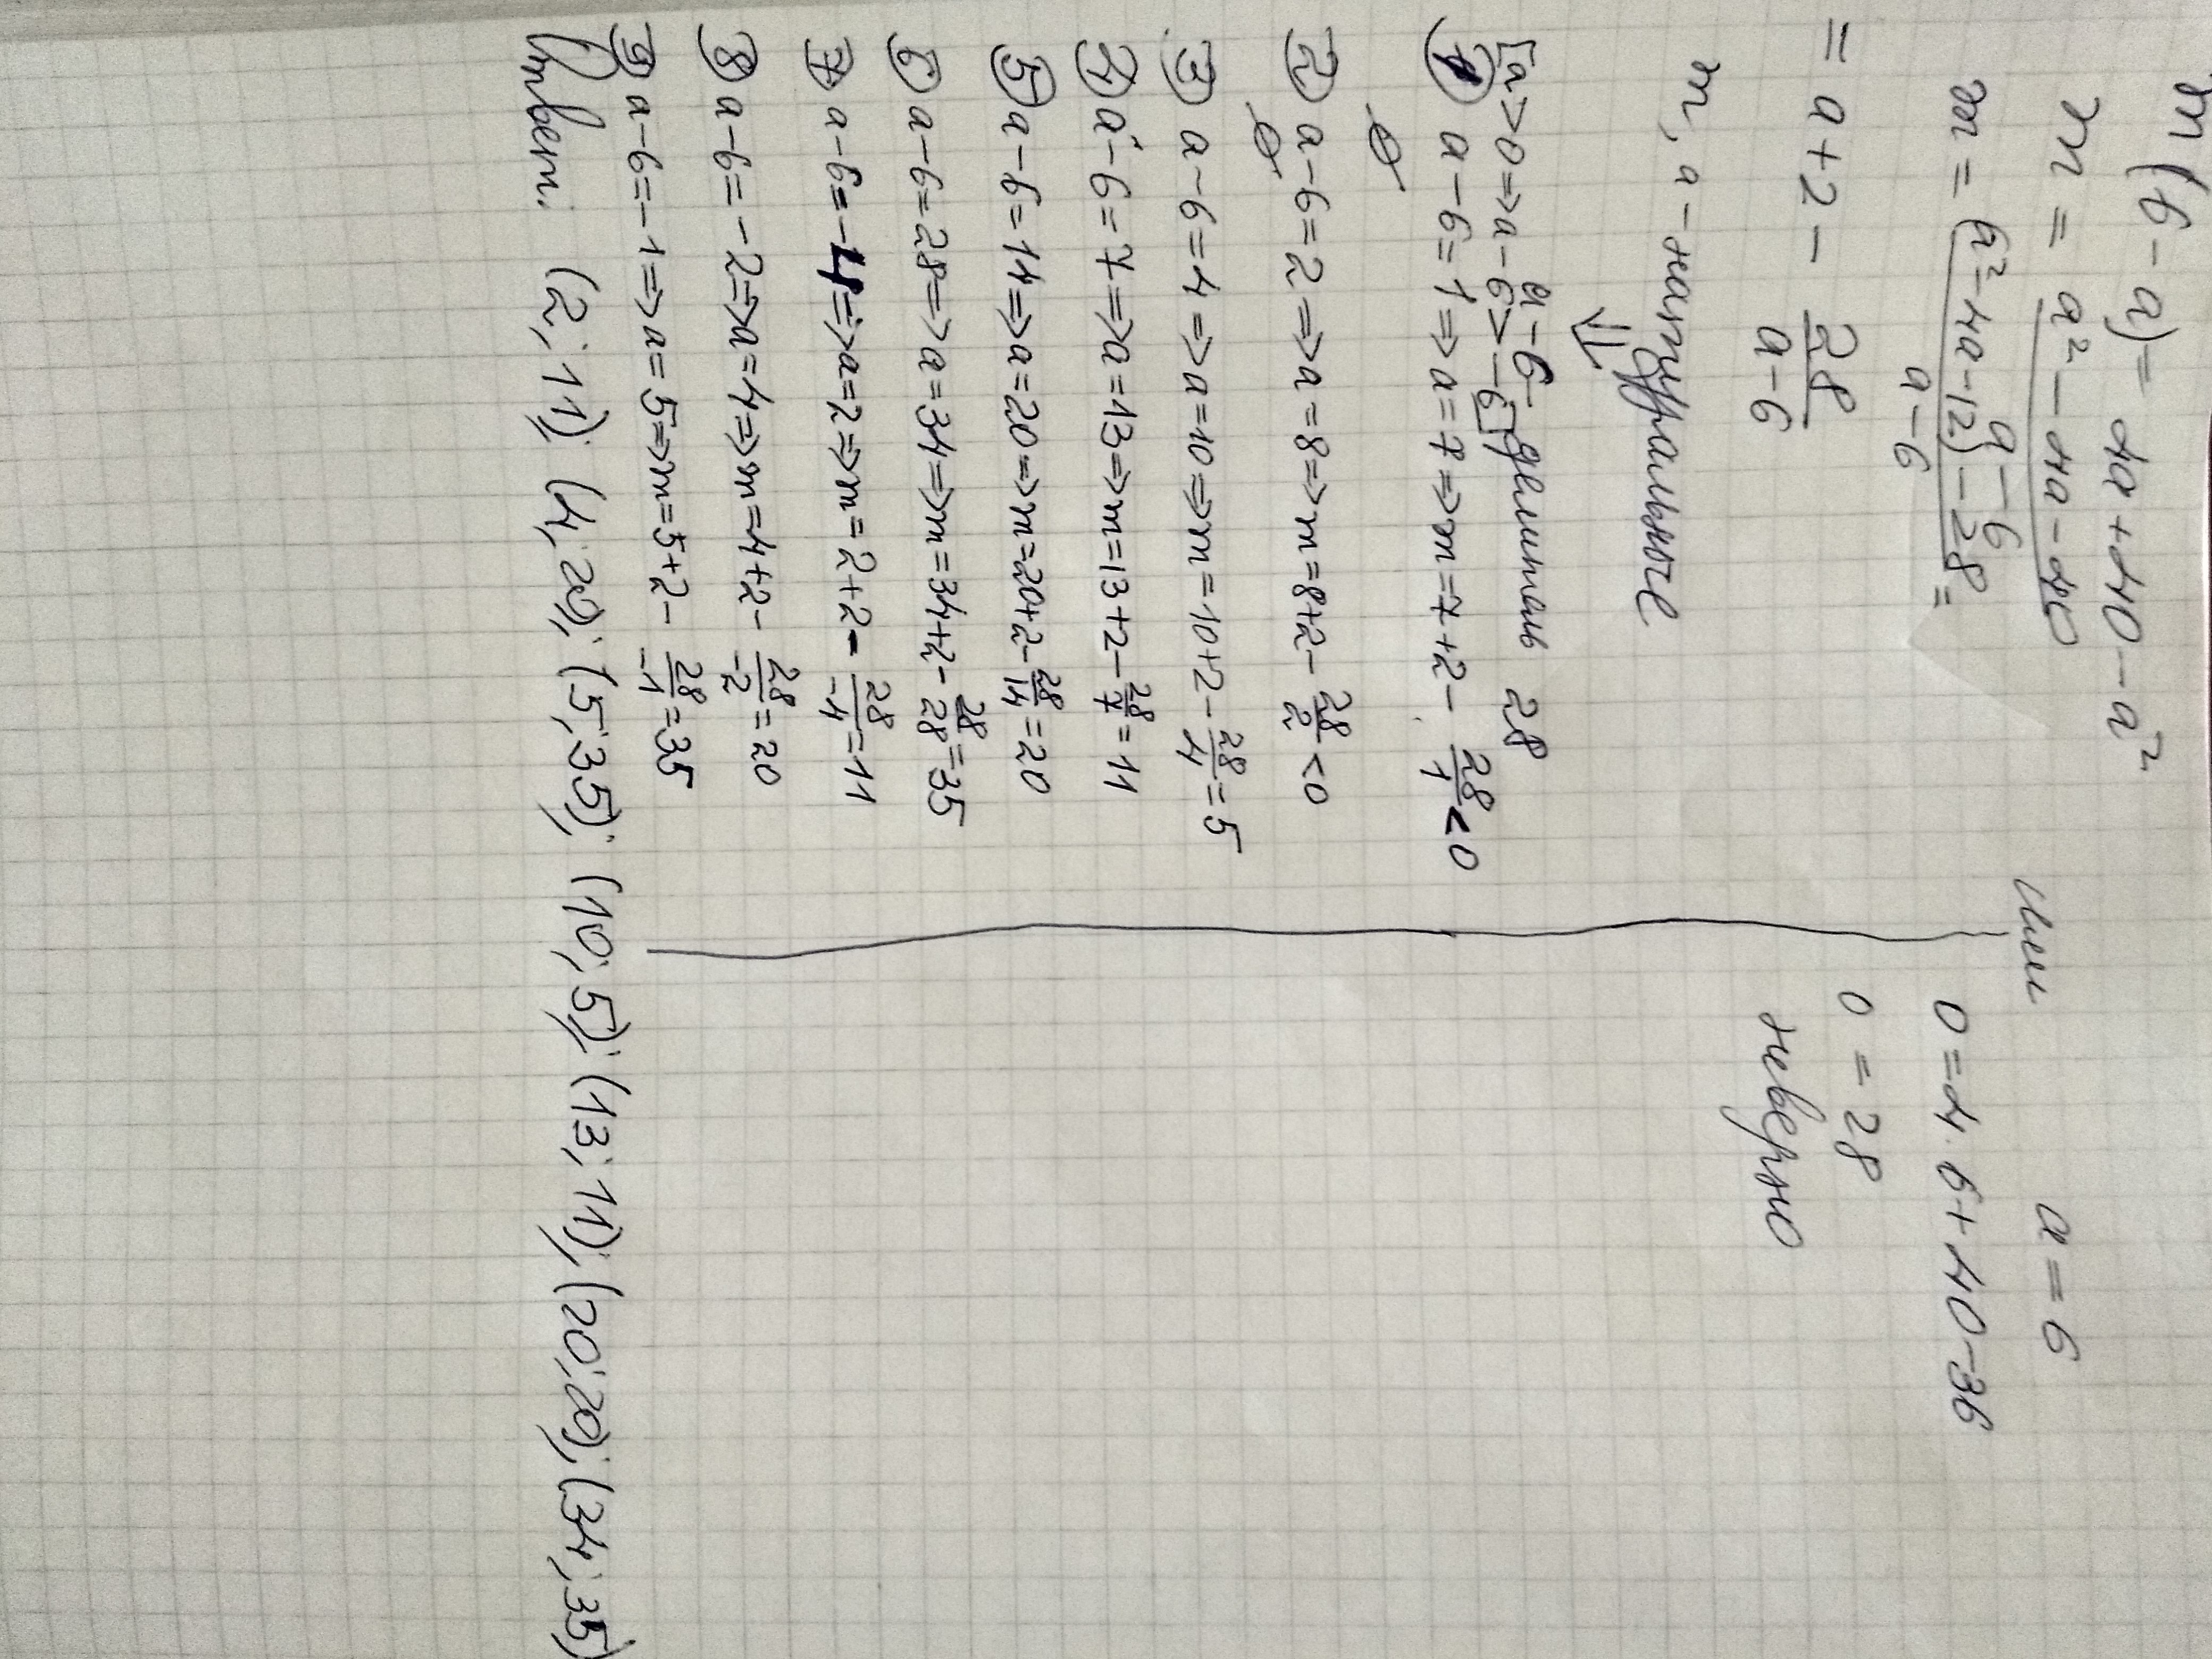 m(6-a) = 4a+40-a²
m = \frac{a²-4a-40}{a-6} или a=6
m = \frac{(a²-4a-12)-28}{a-6} = 0=4·6+40-36
= a+2-\frac{28}{a-6} 0 = 28
неверно
m, a - натуральные
⇓
a-6 - делитель 28
[a>0 ⇒ a-6>-6]
① a-6=1 ⇒ a=7 ⇒ m=7+2-\frac{28}{1}<0
∅
② a-6=2 ⇒ a=8 ⇒ m=8+2-\frac{28}{2}<0
∅
③ a-6=4 ⇒ a=10 ⇒ m=10+2-\frac{28}{4}=5
④ a-6=7 ⇒ a=13 ⇒ m=13+2-\frac{28}{7}=11
⑤ a-6=14 ⇒ a=20 ⇒ m=20+2-\frac{28}{14}=20
⑥ a-6=28 ⇒ a=34 ⇒ m=34+2-\frac{28}{28}=35
⑦ a-6=-4 ⇒ a=2 ⇒ m=2+2-\frac{28}{-4}=11
⑧ a-6=-2 ⇒ a=4 ⇒ m=4+2-\frac{28}{-2}=20
⑨ a-6=-1 ⇒ a=5 ⇒ m=5+2-\frac{28}{-1}=35
Ответ: (2; 11); (4; 20); (5; 35); (10; 5); (13; 11); (20; 20); (34; 35)